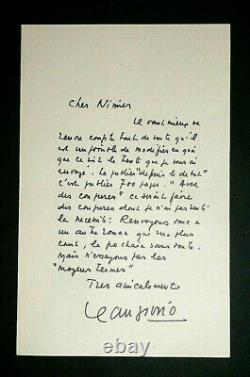 Cher Nimier
Il vaut mieux se
rendre compte tout de suite qu'il
est impossible de modifier en quoi
que ce soit le texte que je vous ai
envoyé. Le publier "depuis le début"
c'est publier 700 pages. "Avec
des coupures" ce serait faire
des coupures dont je n'ai pas senti
la nécessité. Renvoyons donc à
un autre roman qui sera plus
court, le prochain sans doute.
Mais n'essayons pas les
"moyens termes"
Très amicalement
Jean Giono